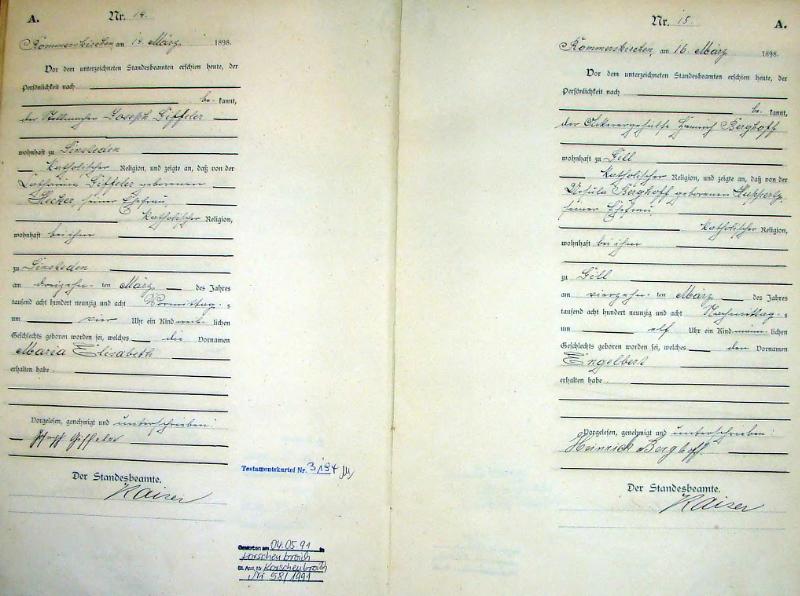 A.
Nr. 14.
Rommerskirchen am 14. März 1898.
Vor dem unterzeichneten Standesbeamten erschien heute, der
Persönlichkeit nach
be- kannt,
der Stellmacher Joseph Giffeler
wohnhaft zu Sinsteden
katholischer Religion, und zeigte an, daß von der
Catharina Giffeler geborenen
seiner Ehefrau,
katholischer Religion,
wohnhaft bei ihm
zu Sinsteden
am dreizehn- ten März des Jahres
tausend acht hundert neunzig und acht Vormittag- s
um vier Uhr ein Kind weib- lichen
Geschlechts geboren worden sei, welches die Vornamen
Maria Elisabeth
erhalten habe.
Vorgelesen, genehmigt und unterschrieben:
Giffeler
Der Standesbeamte.
Kaiser
Testamentskartei Nr. 3194
Gestorben am 04.05.91 in
Korschenbroich
St. Amt. Korschenbroich
Nr. 58/1991
Nr. 15.
A.
Rommerskirchen, am 16. März 1898.
Vor dem unterzeichneten Standesbeamten erschien heute, der
Persönlichkeit nach
be- kannt,
der Ackergehülfe Heinrich Berghoff
wohnhaft zu Gill
katholischer Religion, und zeigte an, daß von der
Ursula Berghoff geborenen
seiner Ehefrau
katholischer Religion,
wohnhaft bei ihm
zu Gill
am vierzehn- ten März des Jahres
tausend acht hundert neunzig und acht Nachmittag- s
um elf Uhr ein Kind männ- lichen
Geschlechts geboren worden sei, welches den Vornamen
Engelbert
erhalten habe.
Vorgelesen, genehmigt und unterschrieben:
Heinrich Berghoff.
Der Standesbeamte.
Kaiser